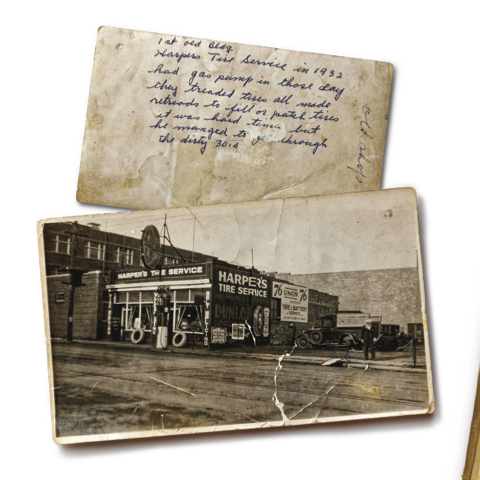 1st old Bldg.
Harpers Tire Service in 1932
had gas pump in those day
they treaded tires all made
retreads to fill or patch tires
it was hard time but
he manged to through
the dirty 30.s
old shop
HARPER'S TIRE SERVICE
HARPER'S
TIRE SERVICE
DUNLOP
76 UNION 76
TIRE & BATTERY
SERVICE